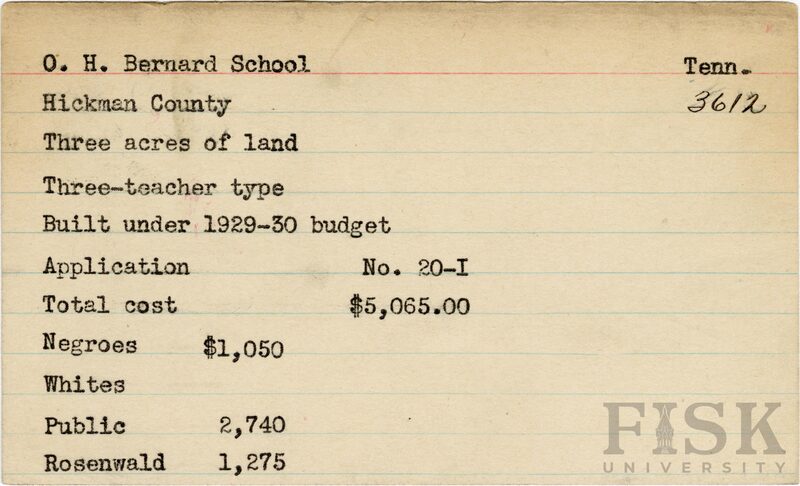 O. H. Bernard School Tenn.
Hickman County 3612
Three acres of land
Three-teacher type
Built under 1929-30 budget
Application No. 20-I
Total cost $5,065.00
Negroes $1,050
Whites
Public 2,740
Rosenwald 1,275
FISK
UNIVERSITY